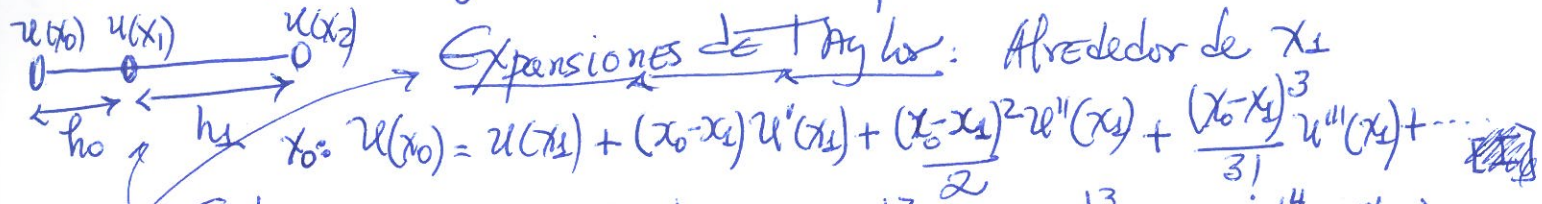 u(x₀) u(x₁) u(x₂)
Expansiones de Taylor: Alrededor de x₁
h₀ h₁
x₀: u(x₀) = u(x₁) + (x₀-x₁) u'(x₁) + (x₀-x₁)²/2 u''(x₁) + (x₀-x₁)³/3! u'''(x₁) + ....